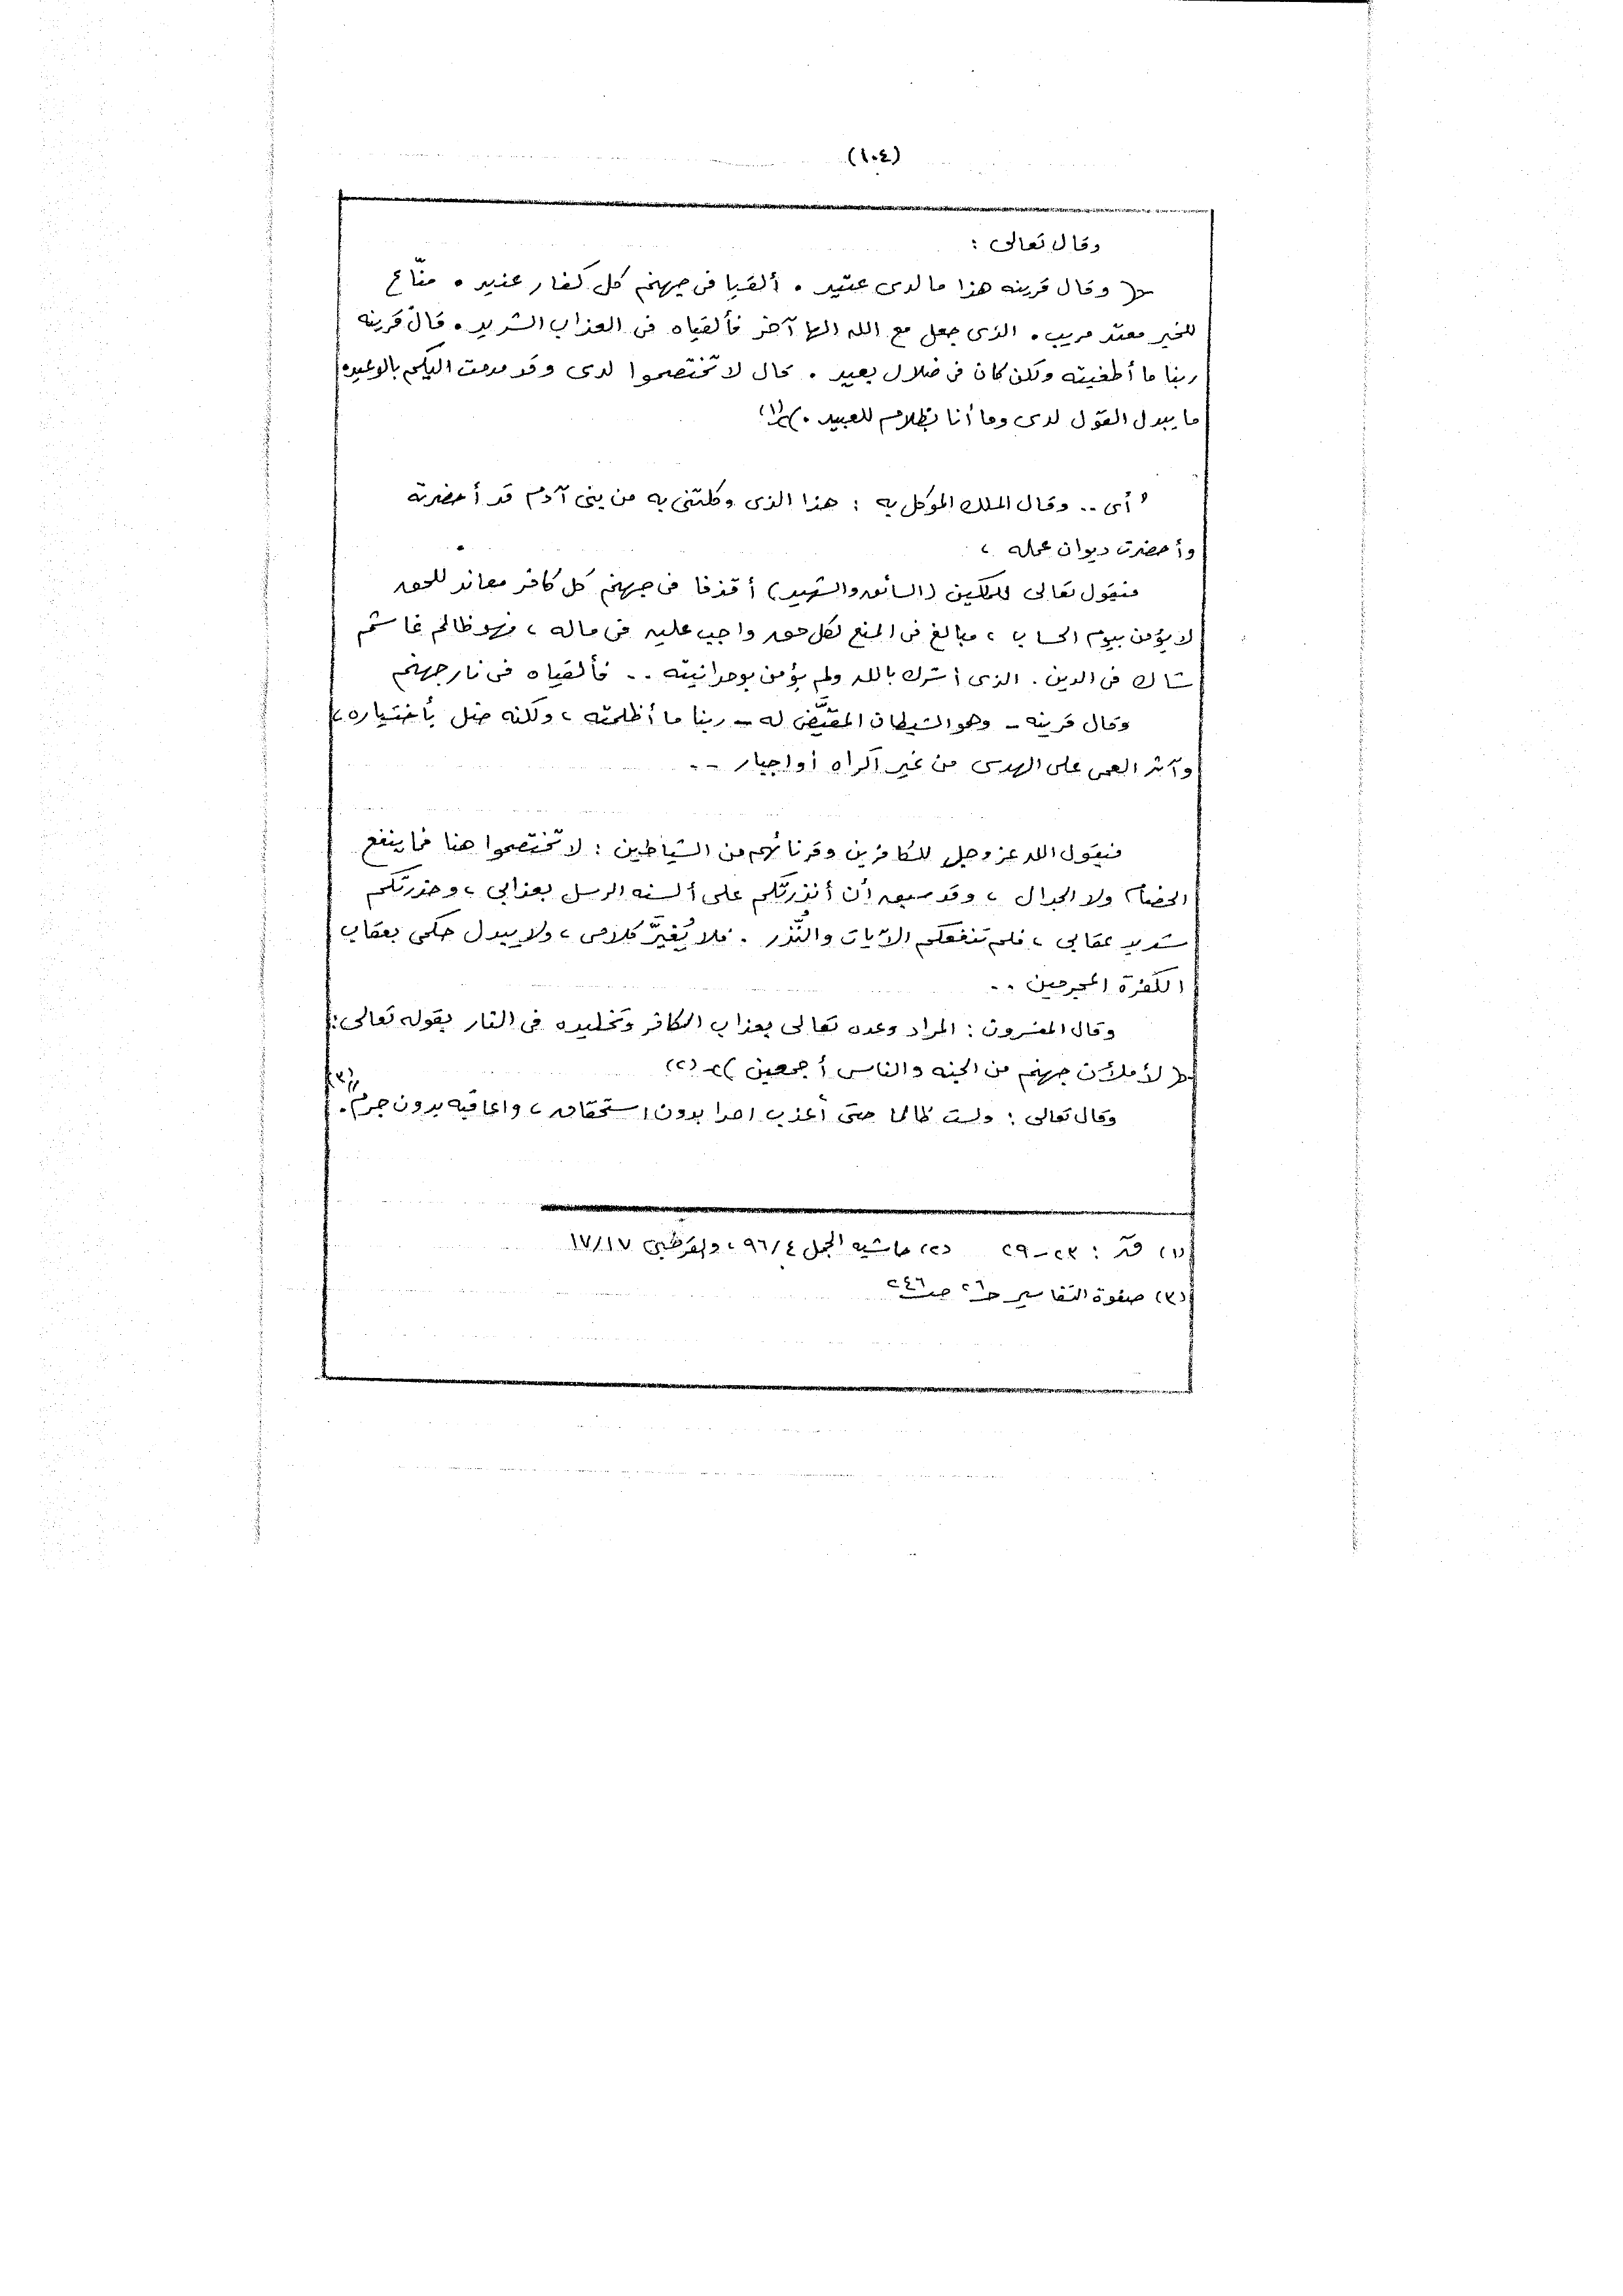 (١٠٤)
وقال تعالى :
﴿ وقال قرينه هذا ما لدى عتيد . ألقيا فى جهنم كل كفار عنيد . منّاع
للخير معتد مريب . الذى جعل مع الله الها آخر فألقياه فى العذاب الشديد . قال قرينه
ربنا ما أطغيته ولكن كان فى ضلال بعيد . قال لا تختصموا لدى وقد قدمت اليكم بالوعيد .
ما يبدل القول لدى وما أنا بظلام للعبيد . ﴾(١)
" أى .. وقال الملك الموكل به : هذا الذى وكلتنى به من بنى آدم قد أحضرته
وأحضرت ديوان عمله ،
فيقول تعالى للملكين (السائق والشهيد) أقذفا فى جهنم كل كافر معاند للحق
لا يؤمن بيوم الحساب ، مبالغ فى المنع لكل حق واجب عليه فى ماله ، فهو ظالم غاشم
شاك فى الدين . الذى أشرك بالله ولم يؤمن بوحدانيته .. فألقياه فى نار جهنم
وقال قرينه - وهو الشيطان المقيَّض له - ربنا ما أظلمته ، ولكنه ضل بأختياره ،
وآثر العمى على الهدى من غير اكراه أو اجبار ..
فيقول الله عز وجل للكافرين وقرنائهم من الشياطين : لا تختصموا هنا فما ينفع
الخصام ولا الجدال ، وقد سبق أن أنذرتكم على ألسنه الرسل بعذابى ، وحذرتكم
شديد عقابى ، فلم تنفعكم الآيات والنُّذر . فلا يُغيَّر كلامى ، ولا يبدل حكمى بعقاب
الكفرة المجرمين ..
وقال المفسرون : المراد وعده تعالى بعذاب الكافر وتخليده فى النار بقوله تعالى :
﴿ لأملأن جهنم من الجنه والناس أجمعين ﴾ (٢)
وقال تعالى : ولست ظالما حتى أعذب احدا بدون استحقاق ، واعاقبه بدون جرم " . (٣)
(١) ق : ٢٣ - ٢٩ (٢) حاشيه الجمل ٤/٩٦ ، والقرطبى ١٧/١٧
(٣) صفوة التفاسير حـ٢٦ صـ٢٤٦